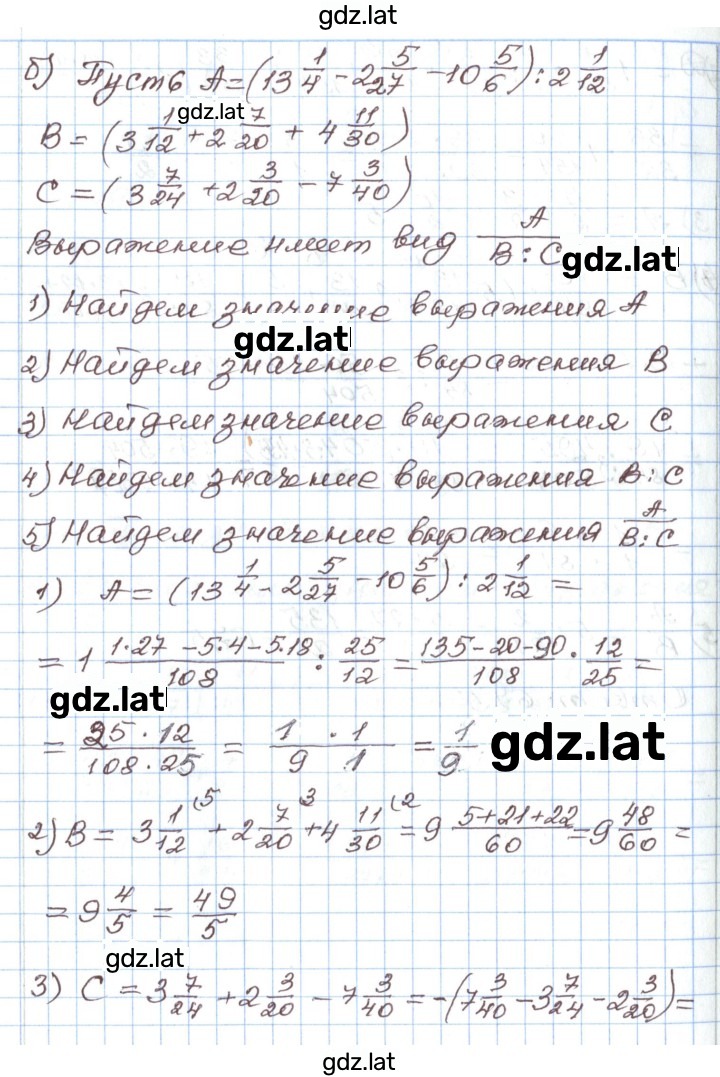 gdz.lat
б) Пусть A = (13 1/4 - 2 5/27 - 10 5/6) : 2 1/12
gdz.lat
B = (3 1/12 + 2 7/20 + 4 11/30)
C = (3 7/24 + 2 3/20 - 7 3/40)
Выражение имеет вид A/(B:C)
gdz.lat
1) Найдем значение выражения A
gdz.lat
2) Найдем значение выражения B
3) Найдем значение выражения C
4) Найдем значение выражения B:C
5) Найдем значение выражения A/(B:C)
1) A = (13 1/4 - 2 5/27 - 10 5/6) : 2 1/12 =
= 1 (1·27 - 5·4 - 5·18)/108 : 25/12 = (135 - 20 - 90)/108 · 12/25 =
gdz.lat
= (25·12)/(108·25) = (1·1)/(9 1) = 1/9
gdz.lat
2) B = 3 1/12 (5 + 2 7/20 (3 + 4 11/30 (2 = 9 (5+21+22)/60 = 9 48/60 =
= 9 4/5 = 49/5
gdz.lat
3) C = 3 7/24 + 2 3/20 - 7 3/40 = -(7 3/40 - 3 7/24 - 2 3/20) =
gdz.lat